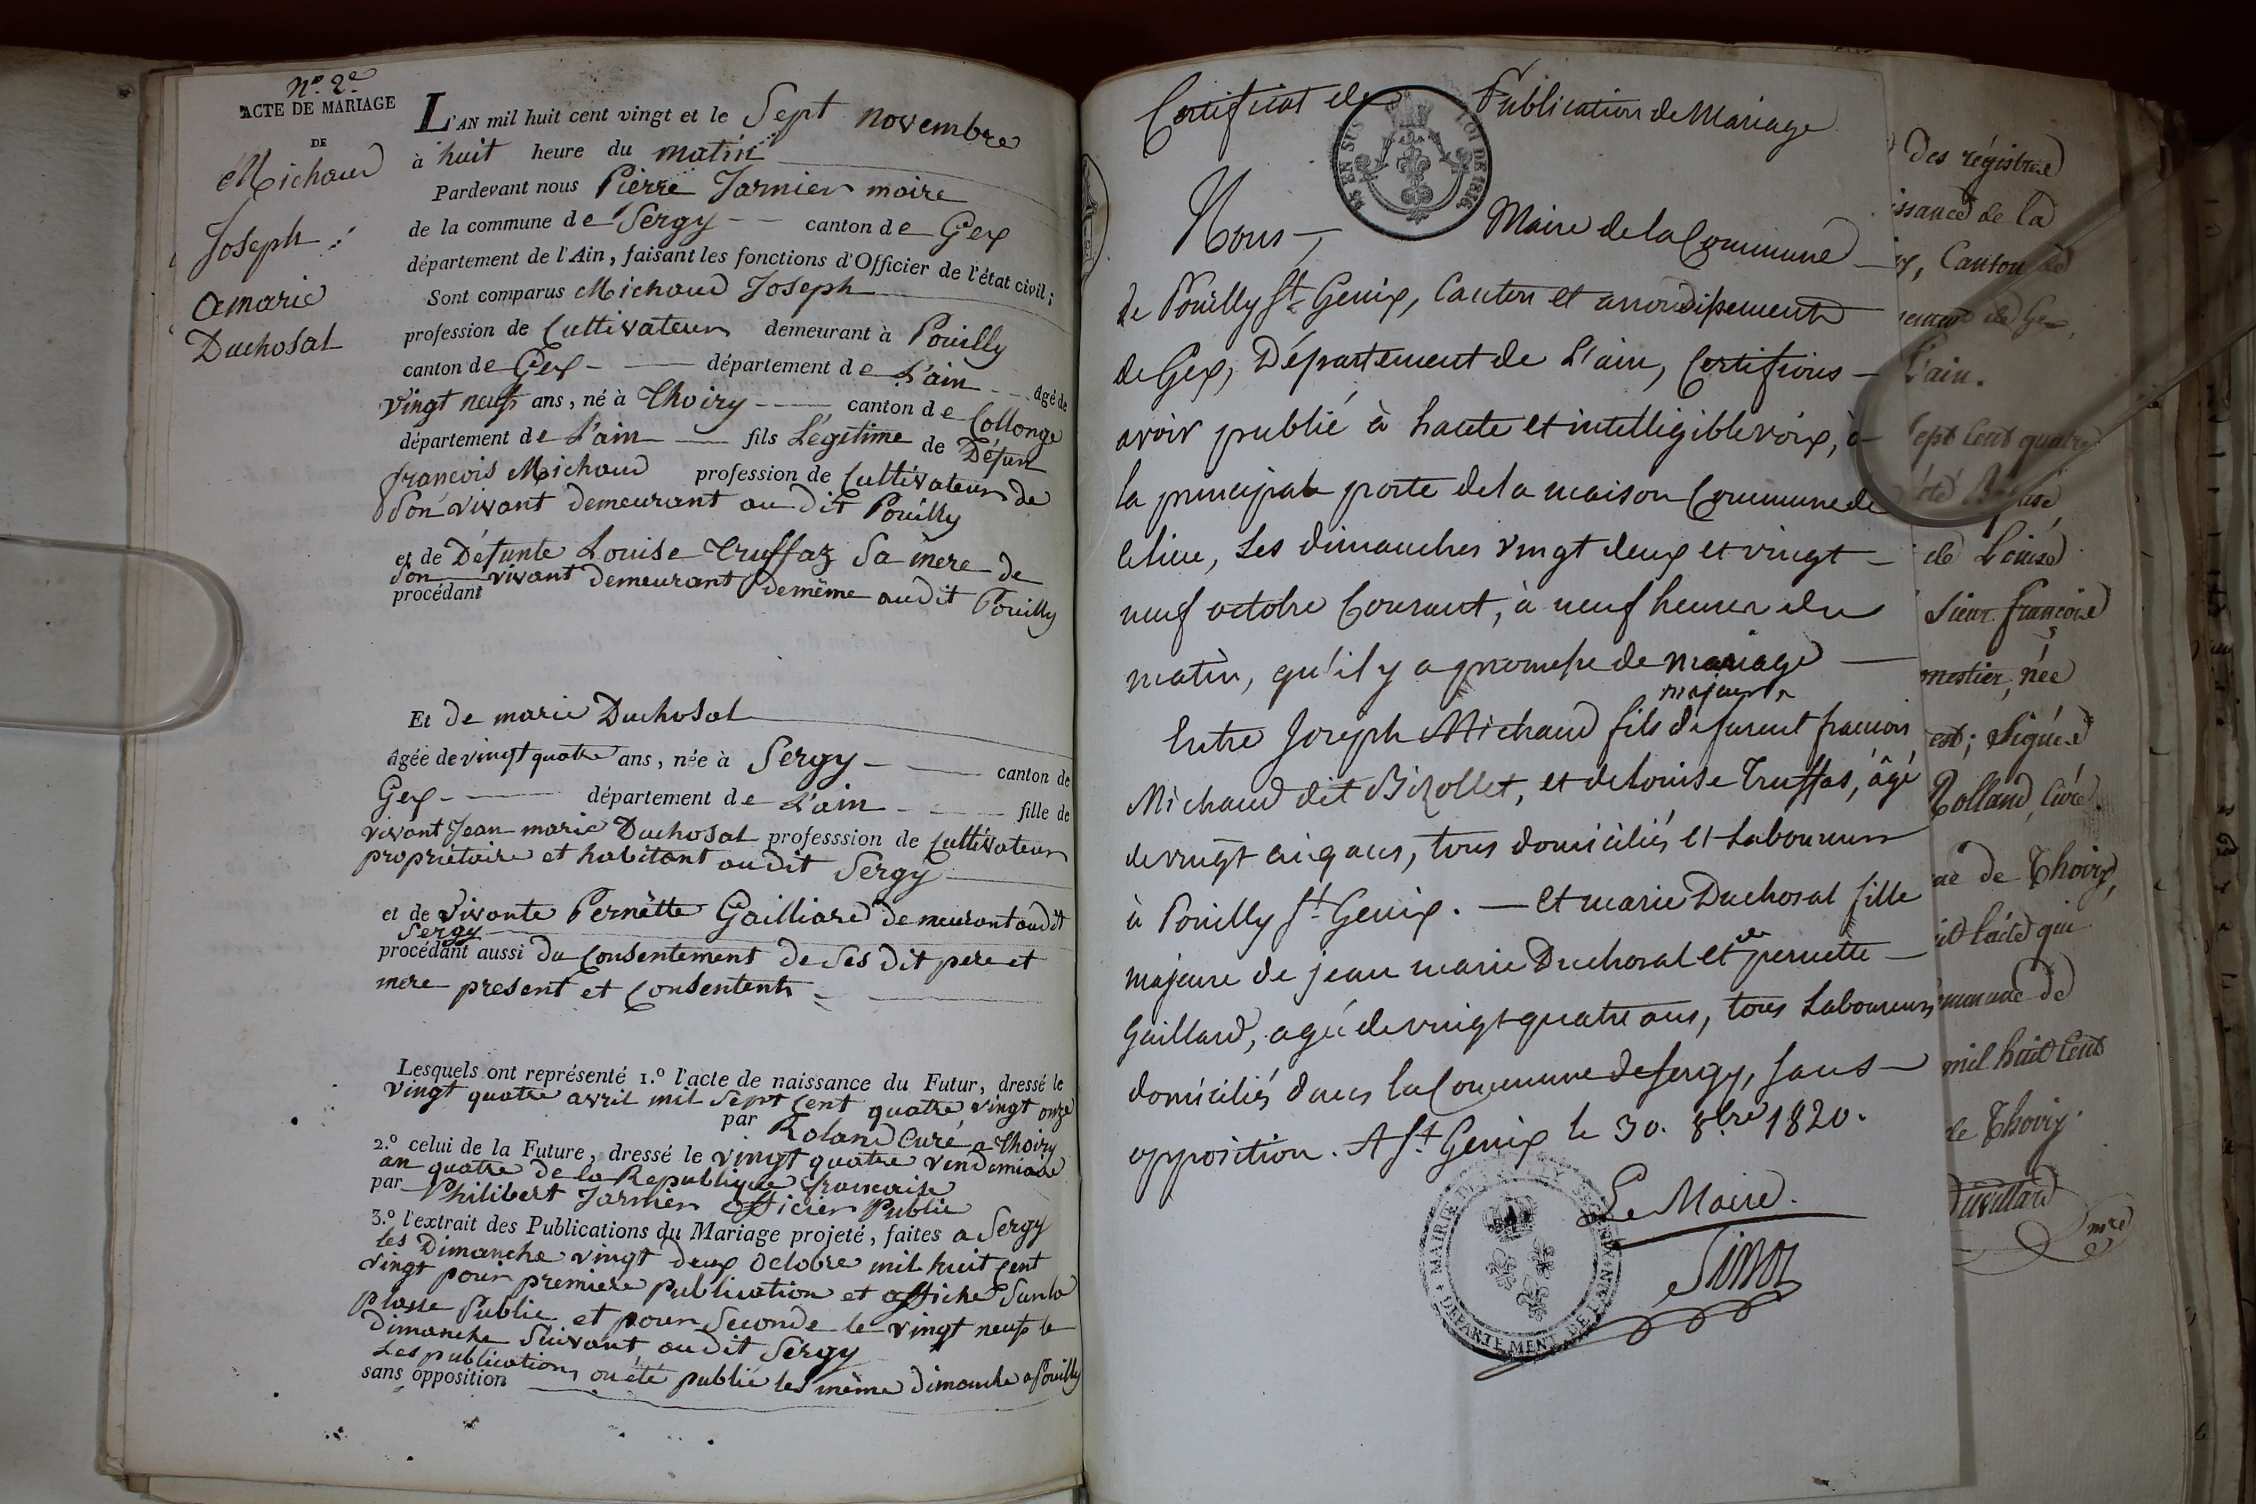 N.º 2.e
ACTE DE MARIAGE
DE
Michaud
Joseph
a marie
Duchosal
L'AN mil huit cent vingt et le Sept novembre
à huit heure du matin
Pardevant nous Pierre Jarnier maire
de la commune de Sergy canton de Gex
département de l'Ain, faisant les fonctions d'Officier de l'état civil;
Sont comparus Michaud Joseph
profession de Cultivateur demeurant à Pouilly
canton de Gex département de L'ain âgé de
vingt neuf ans, né à Thoiry canton de Collonge
département de L'ain fils Légitime de Défunt
françois Michaud profession de Cultivateur de
Son vivant demeurant au dit Pouilly
et de Défunte Louise Truffaz Sa mere de
Son vivant demeurant demême audit Pouilly
procédant
Et de marie Duchosal
âgée de vingt quatre ans, née à Sergy canton de
Gex département de L'ain fille de
vivant Jean marie Duchosal professsion de Cultivateur
propriétaire et habitant audit Sergy
et de Vivante Pernette Gailliard demeurant audit
Sergy
procédant aussi du Consentement de Ses dit pere et
mere present et Consentent
Lesquels ont représenté 1.º l'acte de naissance du Futur, dressé le
vingt quatre avril mil Sept Cent quatre vingt onze
par Roland Curé a Thoiry
2.º celui de la Future, dressé le vingt quatre vendemiaire
an quatre de la Republique francaise
par Philibert Jarnier officier Public
3.º l'extrait des Publications du Mariage projeté, faites a Sergy
les Dimanche vingt deux Octobre mil huit Cent
vingt pour premiere Publication et affiché Sur la
plasse Public et pour Seconde le vingt neuf le
Dimanche Suivant audit Sergy
Les publications on été publié les même Dimanche a Pouilly
sans opposition
Certificat de Publication de Mariage
EN SUS LOI DE 1816
Nous Maire de la Commune
de Pouilly St. Genix, Canton et arrondissement
de Gex, Département de L'ain, Certifions
avoir publié à haute et intelligible voix, à
la principale porte de la maison Commune de
ce lieu, Les dimanches vingt deux et vingt
neuf octobre Courant, à neuf heures du
matin, qu'il y a promesse de mariage
majeur
Entre Joseph Michaud fils de furent francois
Michaud dit Bizollet, et de Louise Truffas, âgé
de vingt cinq ans, tous domiciliés et Laboureurs
à Pouilly St. Genix. — Et marie Duchosal fille
majeure de jean marie Duchosal et de pernette
Gaillard, agée de vingt quatre ans, tous Laboureurs
domiciliés dans la Commune de Sergy, Sans
opposition. A St. Genix le 30. 8bre 1820.
Le Maire.
MAIRIE DE
DÉPARTEMENT DE L'AIN
des régistres
issance de la
Canton de
de Gex,
L'ain.
Sept Cent quatre
été
de Louise
Sieur françois
née
est; Signé
Rolland, Curé
de Thoiry,
l'acte qui
Commune de
mil huit Cent
de Thoiry.
mre